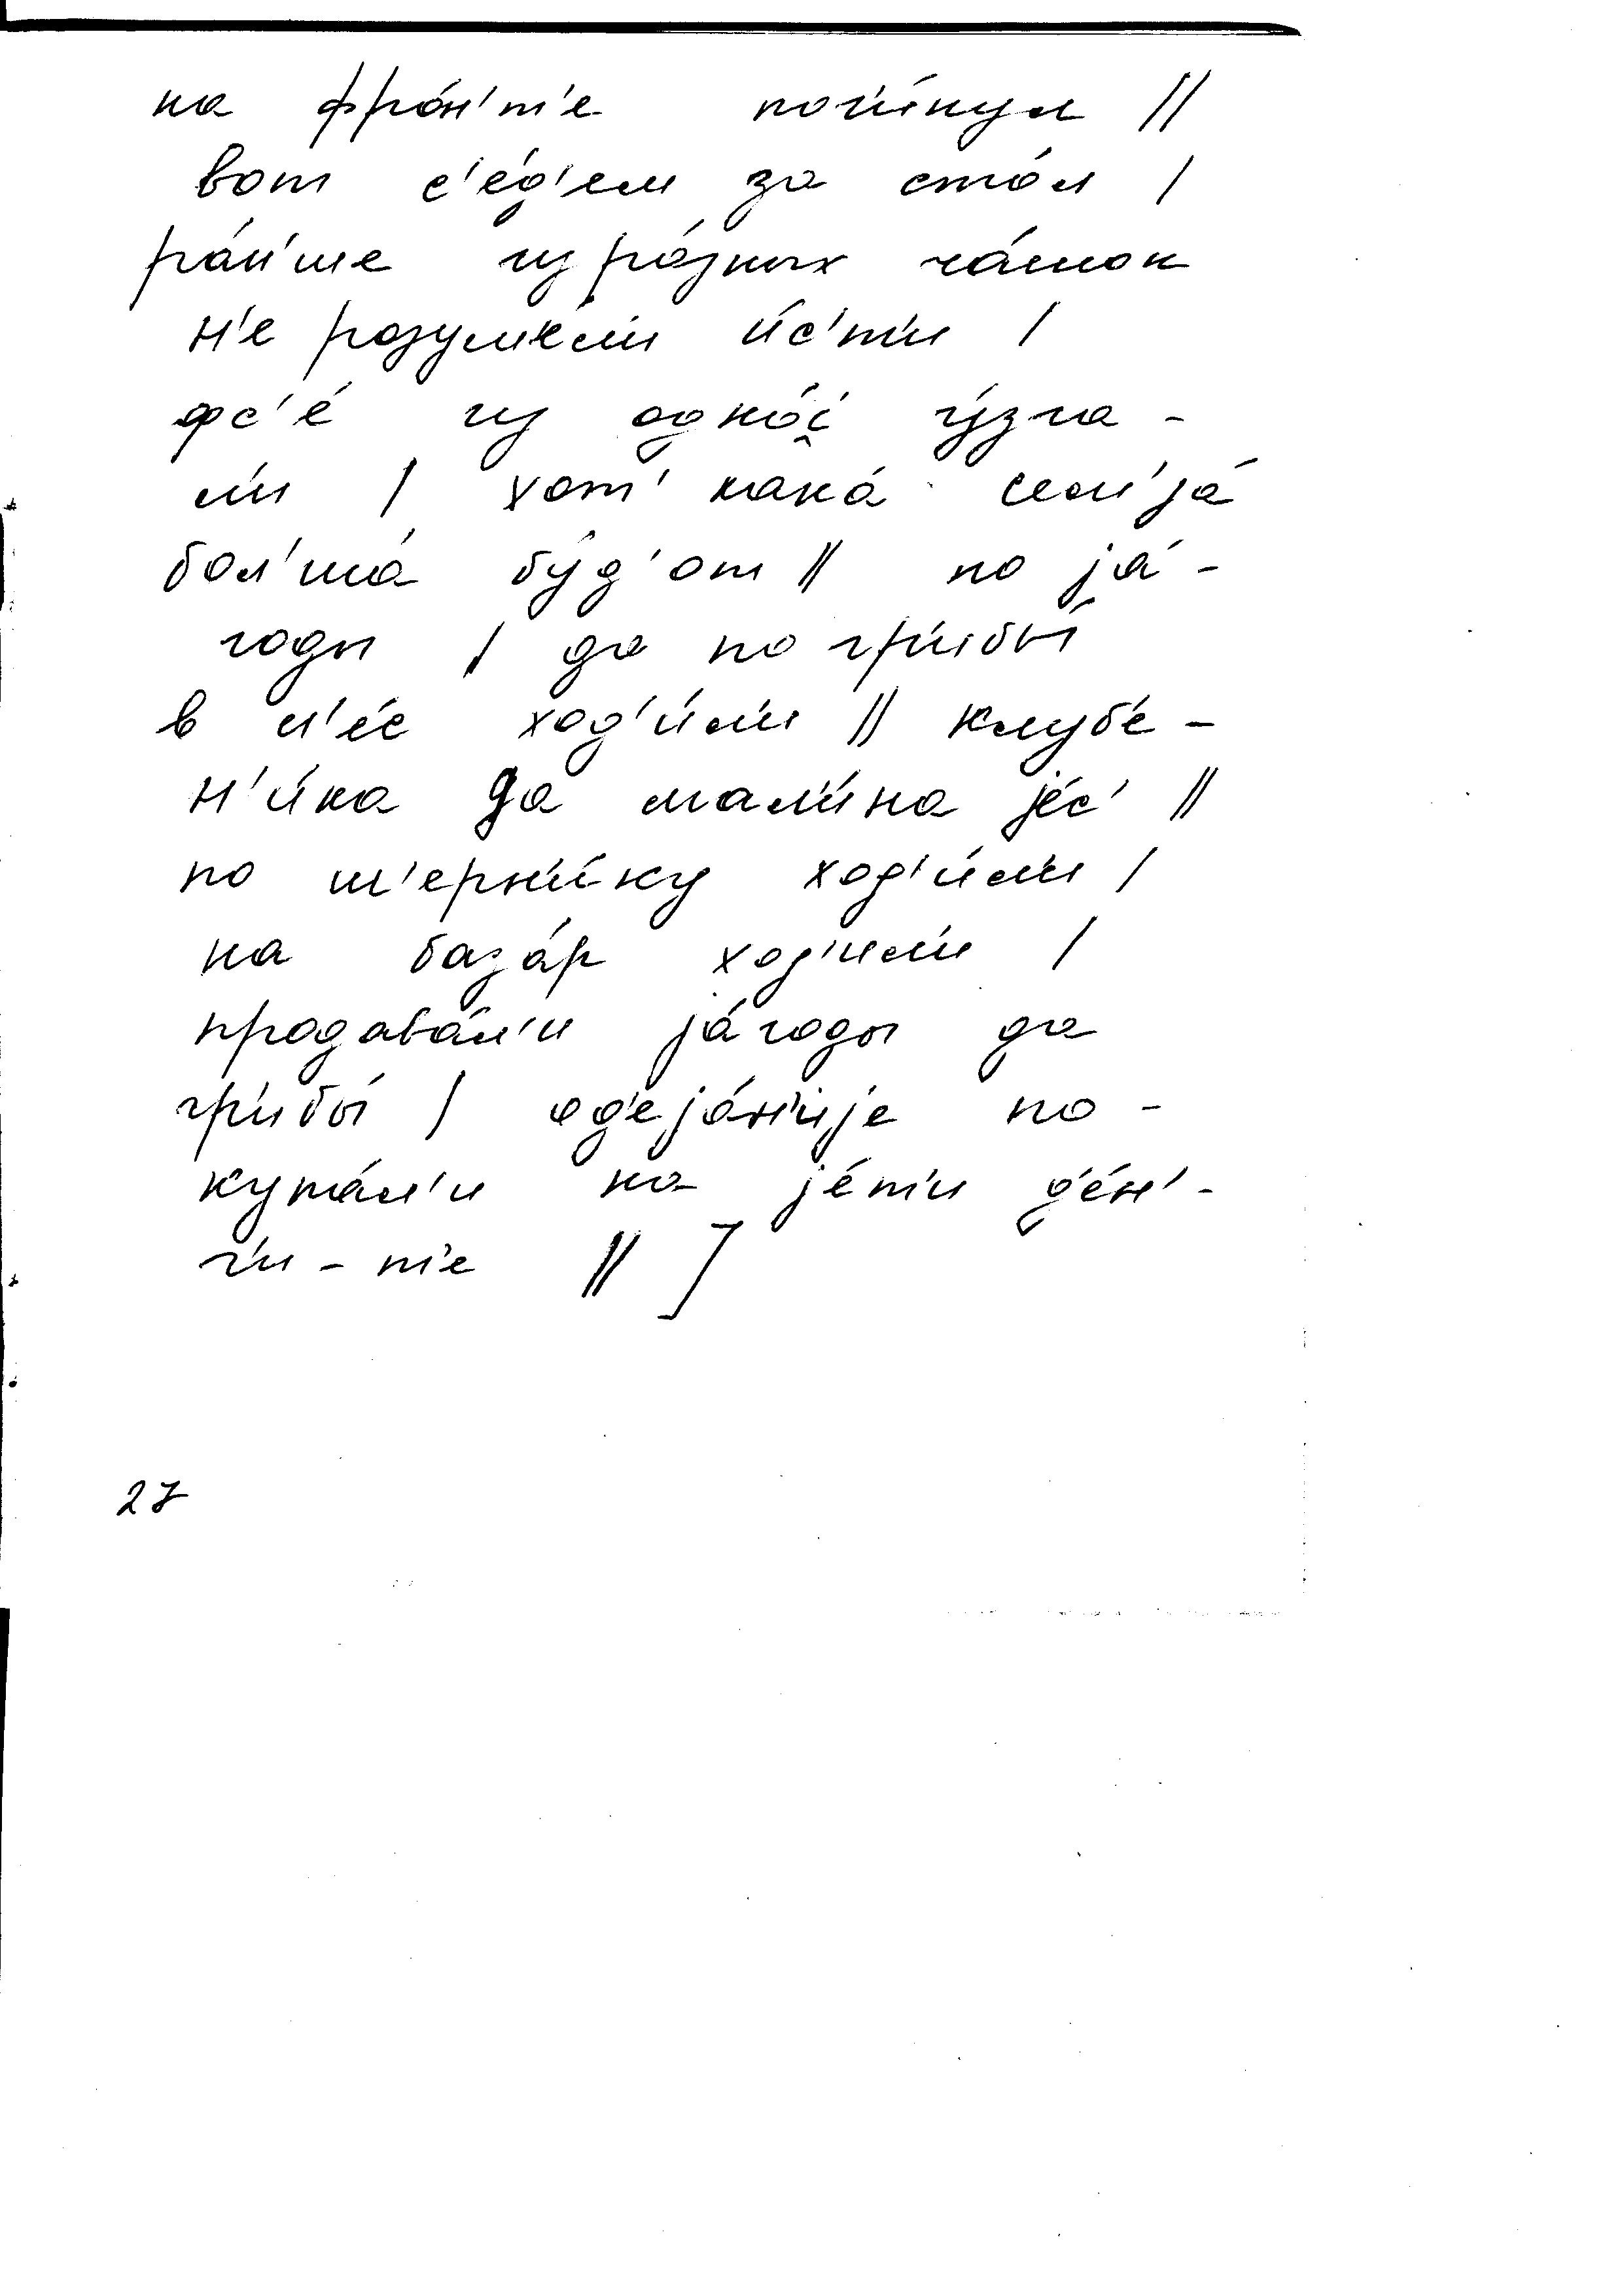 на фро́н'т'е поги́нул //
вот с'е́д'ем за сто́л /
ра́н'ше из ра́зных ча́шок
н'е розуме́ли и́с'т'и /
фс'е́ из одно́й чу́зга -
ли / хот' кака́ сем'ја́
бол'ша́ бу́д'от // по ја́ -
годы / да по гр'ибы́
в л'е́с ход'и́л'и // клубе -
н'и́ка да мали́на је́с' //
по ш'ерн'и́ку ход'и́л'и /
на база́р ход'и́л'и /
продава́л'и ја́годы да
гр'ибы́ / од'еја́н'ије по -
купа́л'и на је́т'и д'е́н' -
г'и - т'е // ]
27